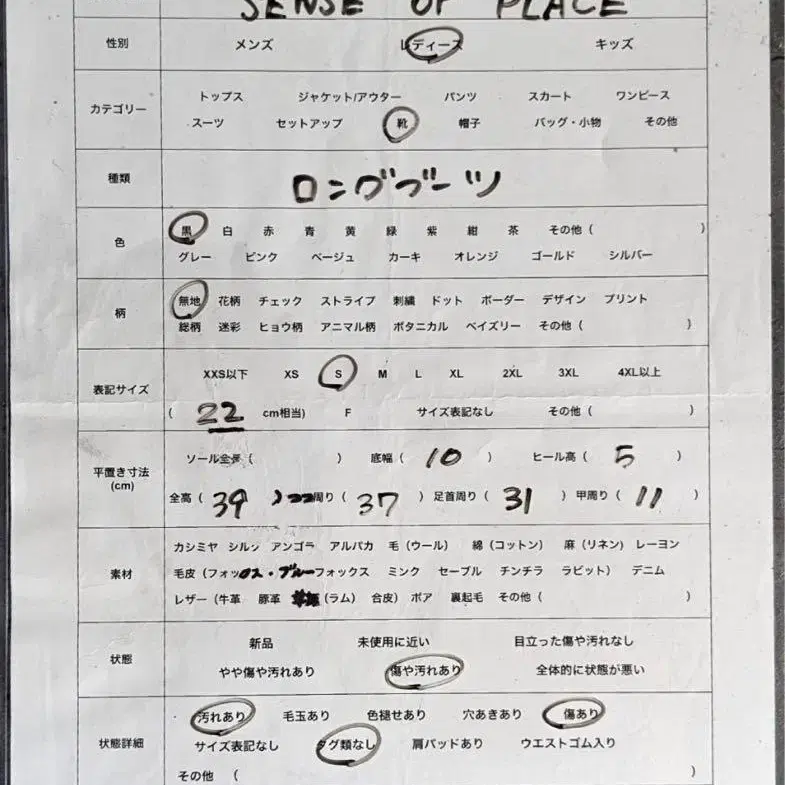 SENSE OF PLACE
性別 メンズ レディース キッズ
トップス ジャケット/アウター パンツ スカート ワンピース
カテゴリー
スーツ セットアップ 靴 帽子 バッグ・小物 その他
種類 ロングブーツ
黒 白 赤 青 黄 緑 紫 紺 茶 その他 ( )
色
グレー ピンク ベージュ カーキ オレンジ ゴールド シルバー
無地 花柄 チェック ストライプ 刺繍 ドット ボーダー デザイン プリント
柄
総柄 迷彩 ヒョウ柄 アニマル柄 ボタニカル ペイズリー その他 ( )
XXS以下 XS S M L XL 2XL 3XL 4XL以上
表記サイズ
( 22 cm相当) F サイズ表記なし その他 ( )
ソール全長 ( ) 底幅 ( 10 ) ヒール高 ( 5 )
平置き寸法
(cm)
全高 ( 39 ) 周り ( 37 ) 足首周り ( 31 ) 甲周り ( 11 )
カシミヤ シルク アンゴラ アルパカ 毛 (ウール) 綿 (コットン) 麻 (リネン) レーヨン
素材
毛皮 (フォックス・ブルーフォックス ミンク セーブル チンチラ ラビット) デニム
レザー (牛革 豚革 (ラム) 合皮) ボア 裏起毛 その他 ( )
新品 未使用に近い 目立った傷や汚れなし
状態
やや傷や汚れあり 傷や汚れあり 全体的に状態が悪い
汚れあり 毛玉あり 色褪せあり 穴あきあり 傷あり
状態詳細
サイズ表記なし タグ類なし 肩パッドあり ウエストゴム入り
その他 ( )